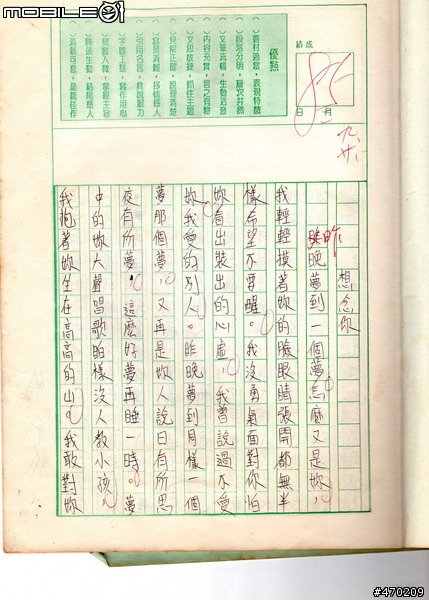 mobile01
優點
（ ）選材適當，表現特殊
（ ）段落分明，層次井然
（ ）文筆流暢，生動活潑
（ ）內容充實，言之有物
（ ）文思敏捷，抓住主題
（ ）見解正確，說理清楚
（ ）寫景清新，抒情感人
（ ）引用名言，具說服力
（ ）字體工整，寫作用心
成績
85
月
日
九、廿
想念你
昨晚夢到一個夢怎麼又是妳，
我輕輕摸著妳的臉眼睛張開都無半
樣命望不要醒。我沒勇氣面對你怕
妳看出裝出的心虛，我曾說過不愛
妳我愛的別人。昨晚夢到同樣一個
夢那個夢，又再是妳人說日有所思
夜有所夢，這麼好夢再睡一時。夢
中的妳大聲唱歌的樣沒人教小孩，
我抱著妳坐在高高的山。我敢對妳
#470209